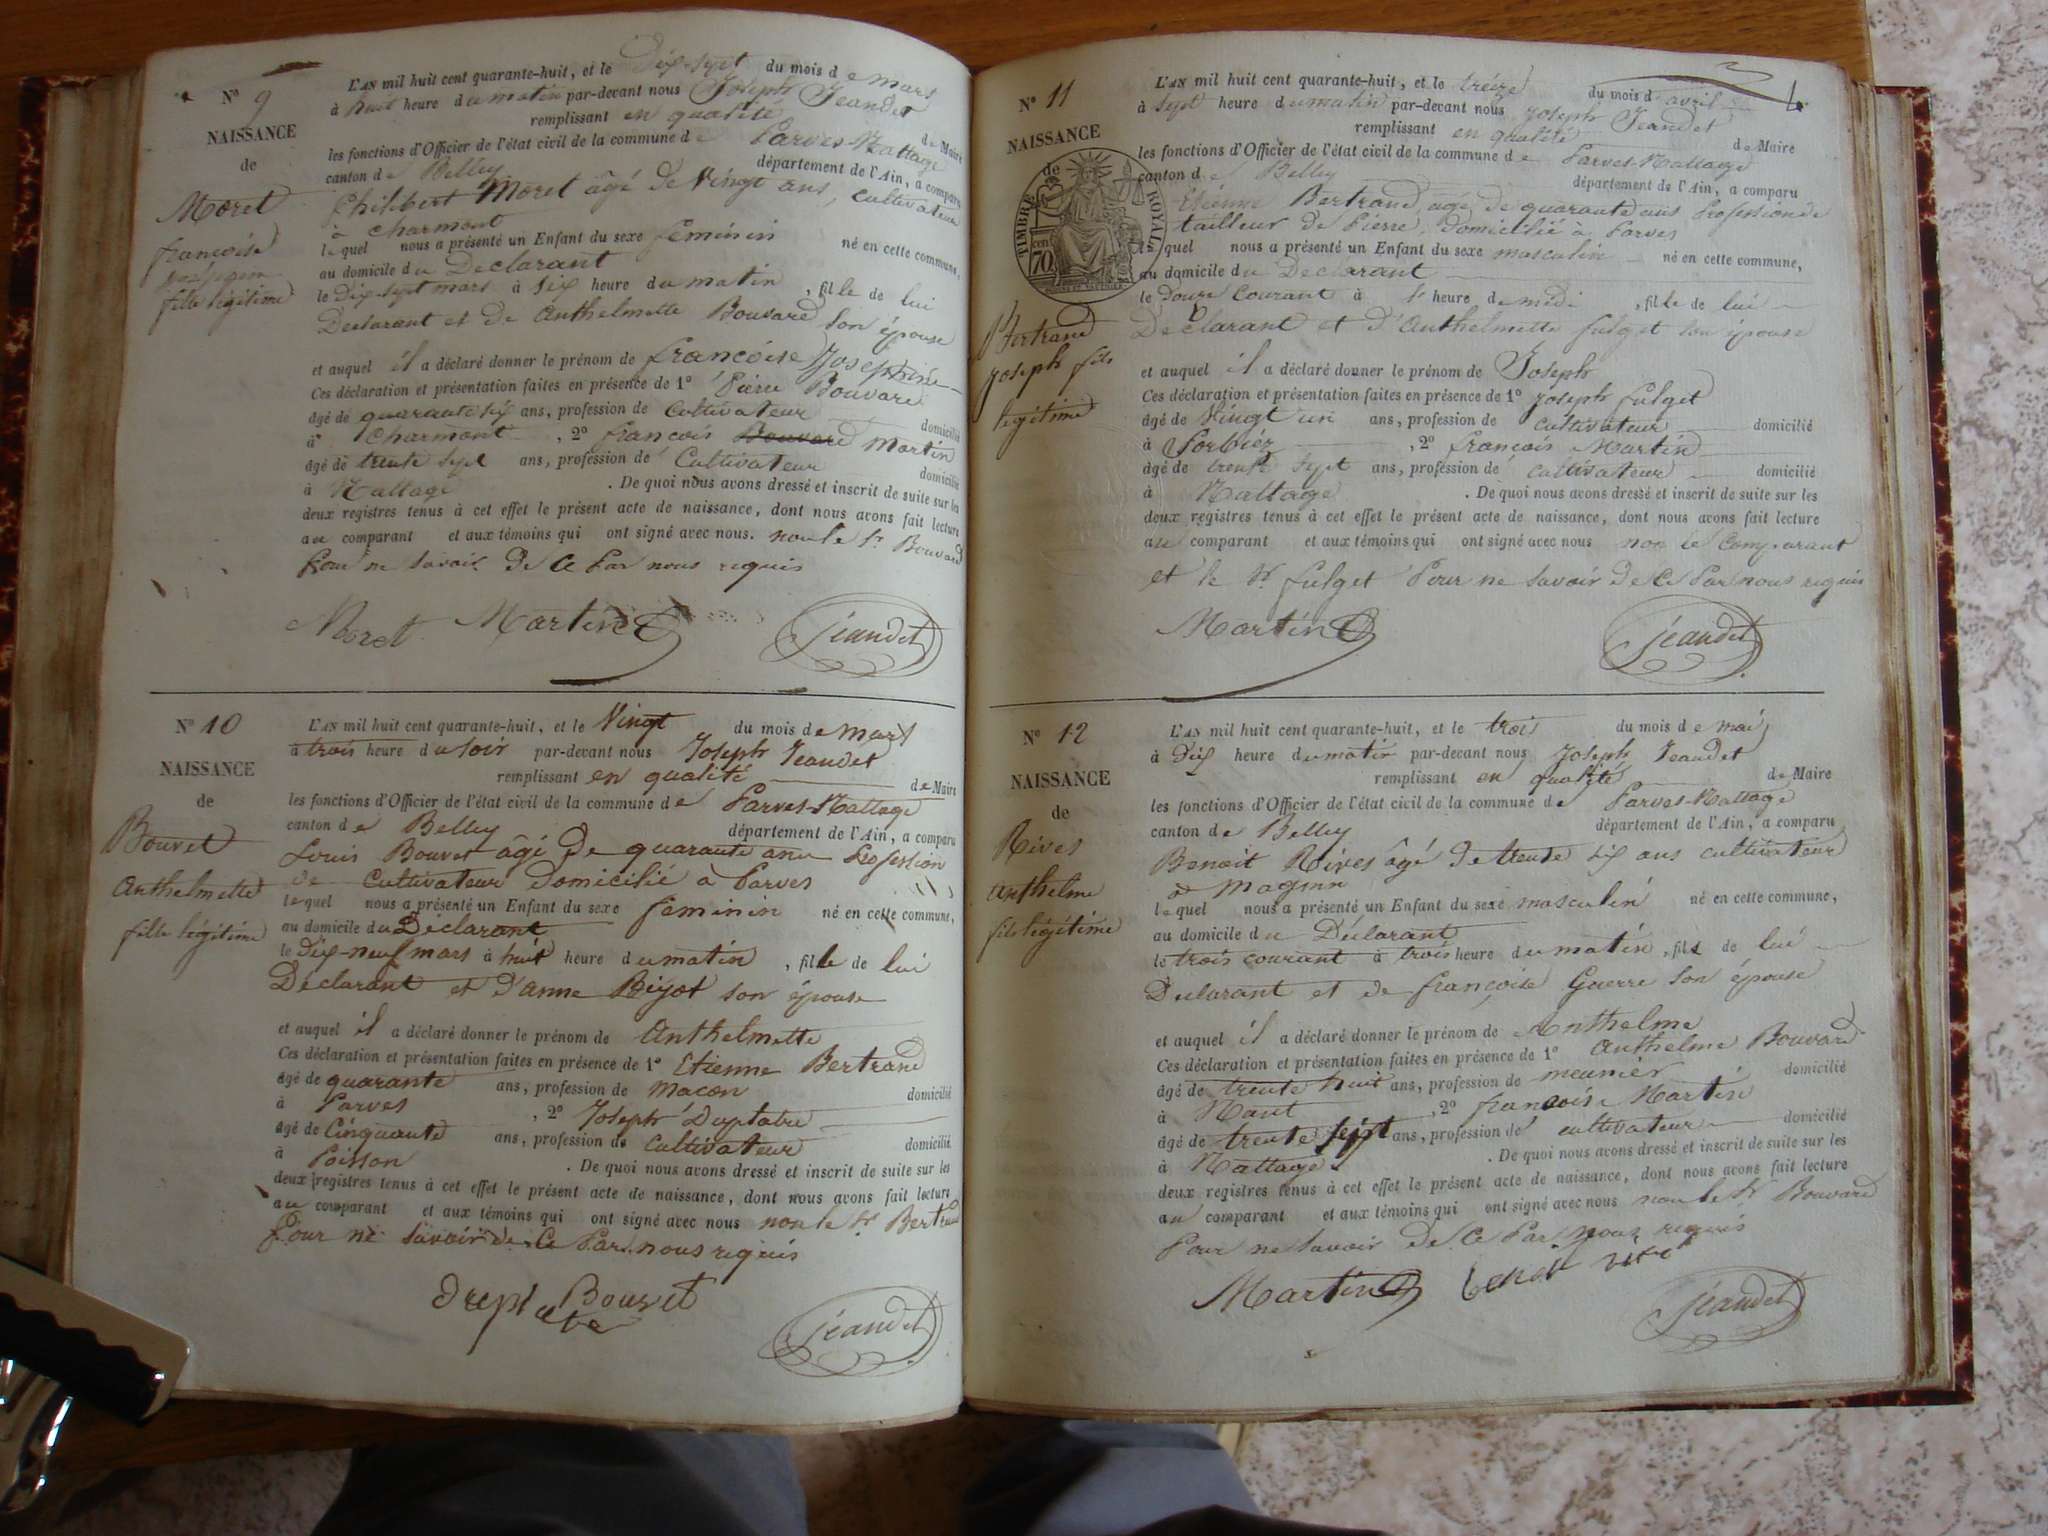 N° 9
NAISSANCE
de
Moret
françoise
joséphine
fille légitime
L'AN mil huit cent quarante-huit, et le Dix-sept du mois de mars
à huit heure du matin par-devant nous Joseph Jeandet
remplissant en qualité de Maire
les fonctions d'Officier de l'état civil de la commune de Parves-Nattage
canton de Belley département de l'Ain, a comparu
Philibert Moret âgé de Vingt ans, cultivateur
à charmont
lequel nous a présenté un Enfant du sexe feminin né en cette commune,
au domicile du Déclarant
le Dix-sept mars à six heure du matin, fille de lui
Declarant et de Anthelmette Bouvard son épouse
et auquel il a déclaré donner le prénom de françoise Joséphine
Ces déclaration et présentation faites en présence de 1° Pierre Bouvard
âgé de quarante six ans, profession de Cultivateur domicilié
à Charmont, 2° françois Bouvard Martin
âgé de trente sept ans, profession de Cultivateur domicilié
à Nattage. De quoi nous avons dressé et inscrit de suite sur les
deux registres tenus à cet effet le présent acte de naissance, dont nous avons fait lecture
au comparant et aux témoins qui ont signé avec nous. non le Sr Bouvard
Pour ne savoir de ce Par nous requis
Moret Martin Jeandet
N° 10
NAISSANCE
de
Bouvet
Anthelmette
fille légitime
L'AN mil huit cent quarante-huit, et le Vingt du mois de mars
à trois heure du soir par-devant nous Joseph Jeandet
remplissant en qualité de Maire
les fonctions d'Officier de l'état civil de la commune de Parves-Nattage
canton de Belley département de l'Ain, a comparu
Louis Bouvet âgé de quarante ans Profession
de Cultivateur Domicilié à Parves
lequel nous a présenté un Enfant du sexe feminin né en cette commune,
au domicile du Déclarant
le Dix-neuf mars à huit heure du matin, fille de lui
Déclarant et D'anne Bijot son épouse
et auquel il a déclaré donner le prénom de Anthelmette
Ces déclaration et présentation faites en présence de 1° Etienne Bertrand
âgé de quarante ans, profession de Macon domicilié
à Parves, 2° Joseph
âgé de Cinquante ans, profession de Cultivateur domicilié
à Poisson. De quoi nous avons dressé et inscrit de suite sur les
deux registres tenus à cet effet le présent acte de naissance, dont nous avons fait lecture
au comparant et aux témoins qui ont signé avec nous non le Sr Bertrand
Pour ne savoir de Ce Par nous requis
Bouvet Jeandet
4
N° 11
NAISSANCE
de
TIMBRE ROYAL
70 cent
Bertrand
Joseph fils
légitime
L'AN mil huit cent quarante-huit, et le treize du mois d'avril
à sept heure du matin par-devant nous Joseph Jeandet
remplissant en qualité de Maire
les fonctions d'Officier de l'état civil de la commune de Parves-Nattage
canton de Belley département de l'Ain, a comparu
Etienne Bertrand age de quarante ans Profession de
tailleur de Pierre, domicilié à Parves
lequel nous a présenté un Enfant du sexe masculin né en cette commune,
au domicile du Declarant
le Douze Courant à heure de midi, fils de lui
Declarant et d'Anthelmette fulget son épouse
et auquel il a déclaré donner le prénom de Joseph
Ces déclaration et présentation faites en présence de 1° Joseph fulget
âgé de Vingt un ans, profession de cultivateur domicilié
à Sorbiez, 2° françois Martin
âgé de trente sept ans, profession de cultivateur domicilié
à Nattage. De quoi nous avons dressé et inscrit de suite sur les
deux registres tenus à cet effet le présent acte de naissance, dont nous avons fait lecture
au comparant et aux témoins qui ont signé avec nous non le Comparant
et le Sr fulget Pour ne savoir de Ce Par nous requis
Martin Jeandet
N° 12
NAISSANCE
de
Rives
anthelme
fils légitime
L'AN mil huit cent quarante-huit, et le trois du mois de mai
à Dix heure du matin par-devant nous Joseph Jeandet
remplissant en qualité de Maire
les fonctions d'Officier de l'état civil de la commune de Parves-Nattage
canton de Belley département de l'Ain, a comparu
Benoit Rives âgé de trente six ans cultivateur
à Magnin
lequel nous a présenté un Enfant du sexe masculin né en cette commune,
au domicile du Déclarant
le trois courant à trois heure du matin, fils de lui
Declarant et de françoise Guerre son épouse
et auquel il a déclaré donner le prénom de Anthelme
Ces déclaration et présentation faites en présence de 1° Anthelme Bouvard
âgé de trente huit ans, profession de meunier domicilié
à Nant, 2° françois Martin
âgé de trente sept ans, profession de cultivateur domicilié
à Nattage. De quoi nous avons dressé et inscrit de suite sur les
deux registres tenus à cet effet le présent acte de naissance, dont nous avons fait lecture
au comparant et aux témoins qui ont signé avec nous non le Sr Bouvard
Pour ne savoir de Ce Par nous requis
Martin Jeandet